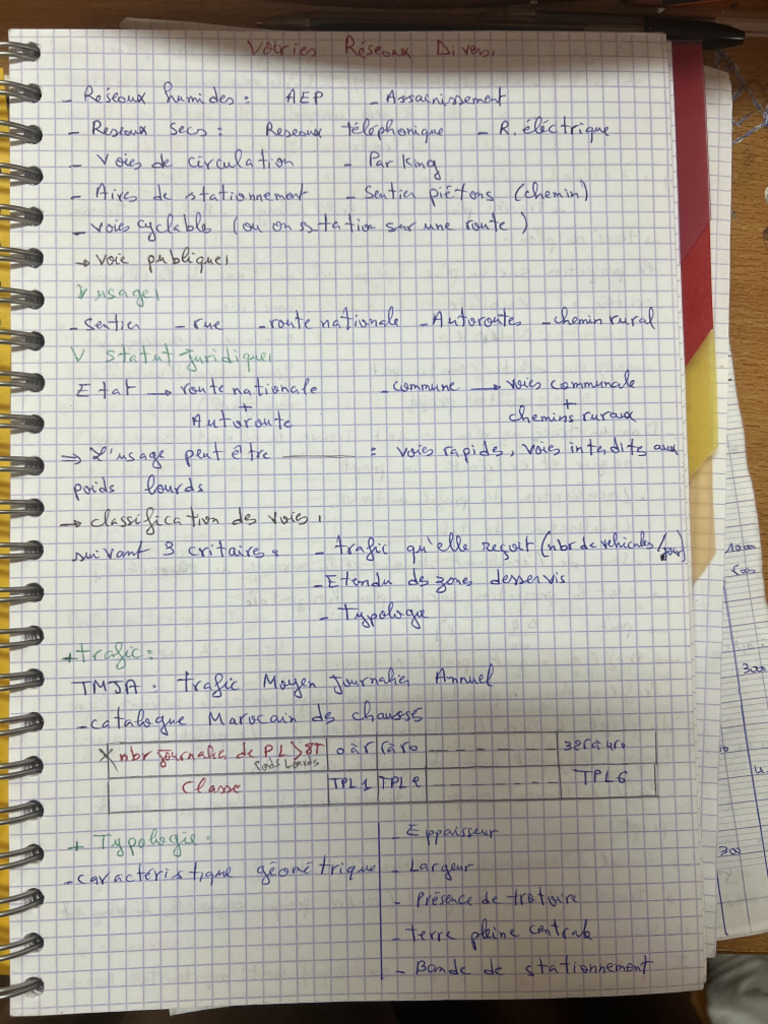 Voiries Réseaux Divers
- Réseaux humides : AEP - Assainissement
- Reseaux Secs : Reseaux téléphonique - R. éléctrique
- Voies de circulation - Parking
- Aires de stationnement - Sentier piétons (chemin)
- voies cyclables (ou on station sur une route)
→ voie publique
V usage
- Sentier - rue - route nationale - Autoroutes - chemin rural
V statut juridique
Etat → route nationale - commune → voies communale
+ +
Autoroute chemins ruraux
⇒ L'usage peut être ——— : voies rapides, voies interdites aux
poids lourds
→ classification des voies
suivant 3 critaires : - trafic qu'elle reçoit (nbr de vehicules / jour)
- Etendu des zones desservis
- Typologie
+ trafic :
TMJA : trafic Moyen Journalier Annuel
- catalogue Marocain des chaussés
nbr journalier de PL > 8T 0 à 5 5 à 20 - - - - -
Poids Lourds
Classe TPL1 TPL2 - - - - - TPL6
+ Typologie :
- caractéristique géométrique
- Eppaisseur
- Largeur
- Présence de trotoire
- terre pleine centrale
- Bande de stationnement